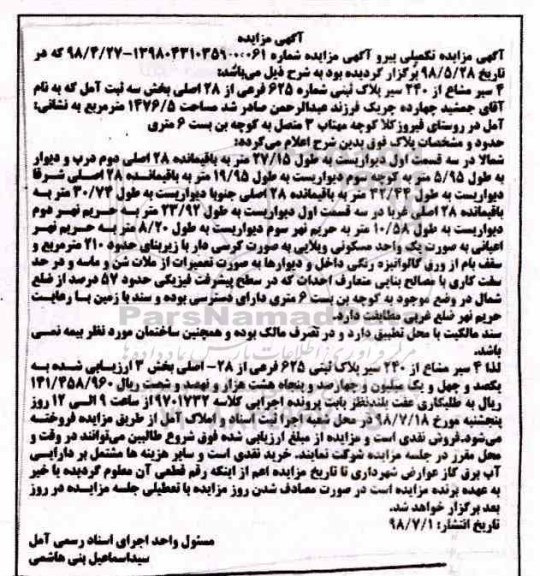 آگهی مزایده
آگهی مزایده تکمیلی پیرو آگهی مزایده شماره ۱۳۹۸۰۴۳۱۰۳۵۹۰۰۰۰۶۱-۹۸/۴/۲۷ که در
تاریخ ۹۸/۵/۲۸ برگزار گردیده بود به شرح ذیل می‌باشد:
۴ سیر مشاع از ۲۴۰ سیر پلاک ثبتی شماره ۶۲۵ فرعی از ۲۸ اصلی بخش سه ثبت آمل که به نام
آقای جمشید چهارده چریک فرزند عبدالرحمن صادر شد مساحت ۱۴۷۶/۵ مترمربع به نشانی:
آمل در روستای فیروزکلا کوچه مهتاب ۳ متصل به کوچه بن بست ۶ متری
حدود و مشخصات پلاک فوق بدین شرح اعلام می‌گردد:
شمالا در سه قسمت اول دیواریست به طول ۲۷/۱۵ متر به باقیمانده ۲۸ اصلی دوم درب و دیوار
به طول ۵/۹۵ متر به کوچه سوم دیواریست به طول ۱۹/۹۵ متر به باقیمانده ۲۸ اصلی شرقا
دیواریست به طول ۴۲/۴۴ متر به باقیمانده ۲۸ اصلی جنوبا دیواریست به طول ۳۰/۷۴ متر به
باقیمانده ۲۸ اصلی غربا در سه قسمت اول دیواریست به طول ۲۳/۹۲ متر به حریم نهر دوم
دیواریست به طول ۱۰/۵۸ متر به حریم نهر سوم دیواریست به طول ۸/۲۰ متر به حریم نهر
اعیانی به صورت یک واحد مسکونی ویلایی به صورت کرسی دار با زیربنای حدود ۲۱۰ مترمربع و
سقف بام از ورق گالوانیزه رنگی داخل و دیوارها به صورت تعمیرات از ملات شن و ماسه و در حد
سفت کاری با مصالح بنایی متعارف احداث که در سطح پیشرفت فیزیکی حدود ۵۷ درصد از ضلع
شمال در وضع موجود به کوچه بن بست ۶ متری دارای دسترسی بوده و سند با زمین با رعایت
حریم نهر ضلع غربی مطابقت دارد.
سند مالکیت با محل تطبیق دارد و در تصرف مالک بوده و همچنین ساختمان مورد نظر بیمه نمی
باشد.
لذا ۴ سیر مشاع از ۲۴۰ سیر پلاک ثبتی ۶۲۵ فرعی از ۲۸- اصلی بخش ۳ ارزیابی شده به
یکصد و چهل و یک میلیون و چهارصد و پنجاه هشت هزار و نهصد و شصت ریال ۱۴۱/۴۵۸/۹۶۰
ریال به طلبکاری عفت بلندنظر بابت پرونده اجرایی کلاسه ۹۷۰۱۷۳۲ از ساعت ۹ الی ۱۲ روز
پنجشنبه مورخ ۹۸/۷/۱۸ در محل شعبه اجرا ثبت اسناد و املاک آمل از طریق مزایده فروخته
می‌شود.فروش نقدی است و مزایده از مبلغ ارزیابی شده فوق شروع طالبین می‌توانند در وقت و
محل مقرر در جلسه مزایده شرکت نمایند. خرید نقدی است و سایر هزینه ها مشتمل بر دارایی
آب برق گاز عوارض شهرداری تا تاریخ مزایده اعم از اینکه رقم قطعی آن معلوم گردیده یا خیر
به عهده برنده مزایده است در صورت مصادف شدن روز مزایده با تعطیلی جلسه مزایده در روز
بعد برگزار خواهد شد.
تاریخ انتشار: ۹۸/۷/۱
مسئول واحد اجرای اسناد رسمی آمل
سیداسماعیل بنی هاشمی